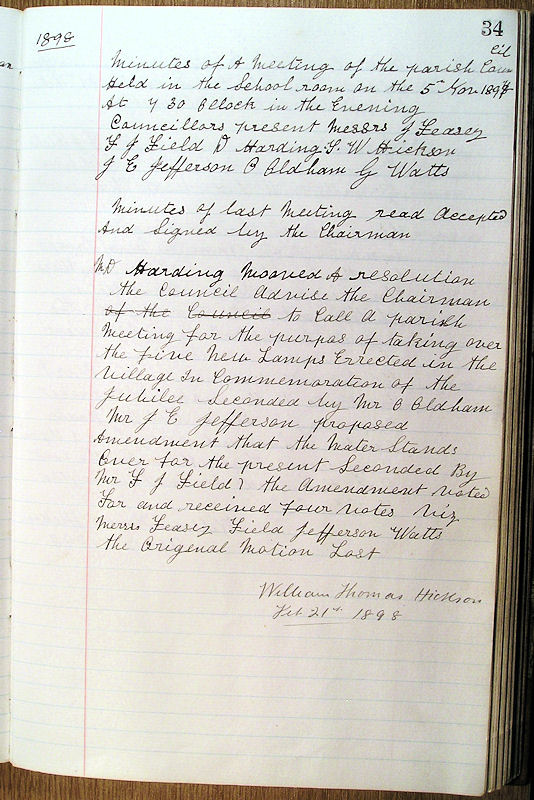 34
1898
Minutes of A Meeting of the parish Coun
cil
Held in the School room on the 5th Nov 1897
At 7 30 Oclock in the Evening
Councillors present Messrs J Feasey
F J Field D Harding T. W Hickson
J E Jefferson C Oldham G Watts
Minutes of last Meeting read Accepted
And Signed by the Chairman
Mr D Harding Mooved A resolution
the Council Advise the Chairman
of the Council to Call A parish
Meeting for the purpas of taking over
the five New Lamps Errected in the
Village In Commemoration of the
Jubilee Seconded by Mr C Oldham
Mr J E Jefferson proposed
Amendment that the Mater Stands
Over for the present Seconded By
Mr F J Field the Amendment Voted
For and received four Votes Viz
Messrs Feasey Field Jefferson Watts
the Origenal Motion Lost
William Thomas Hickson
Feb 21st 1898